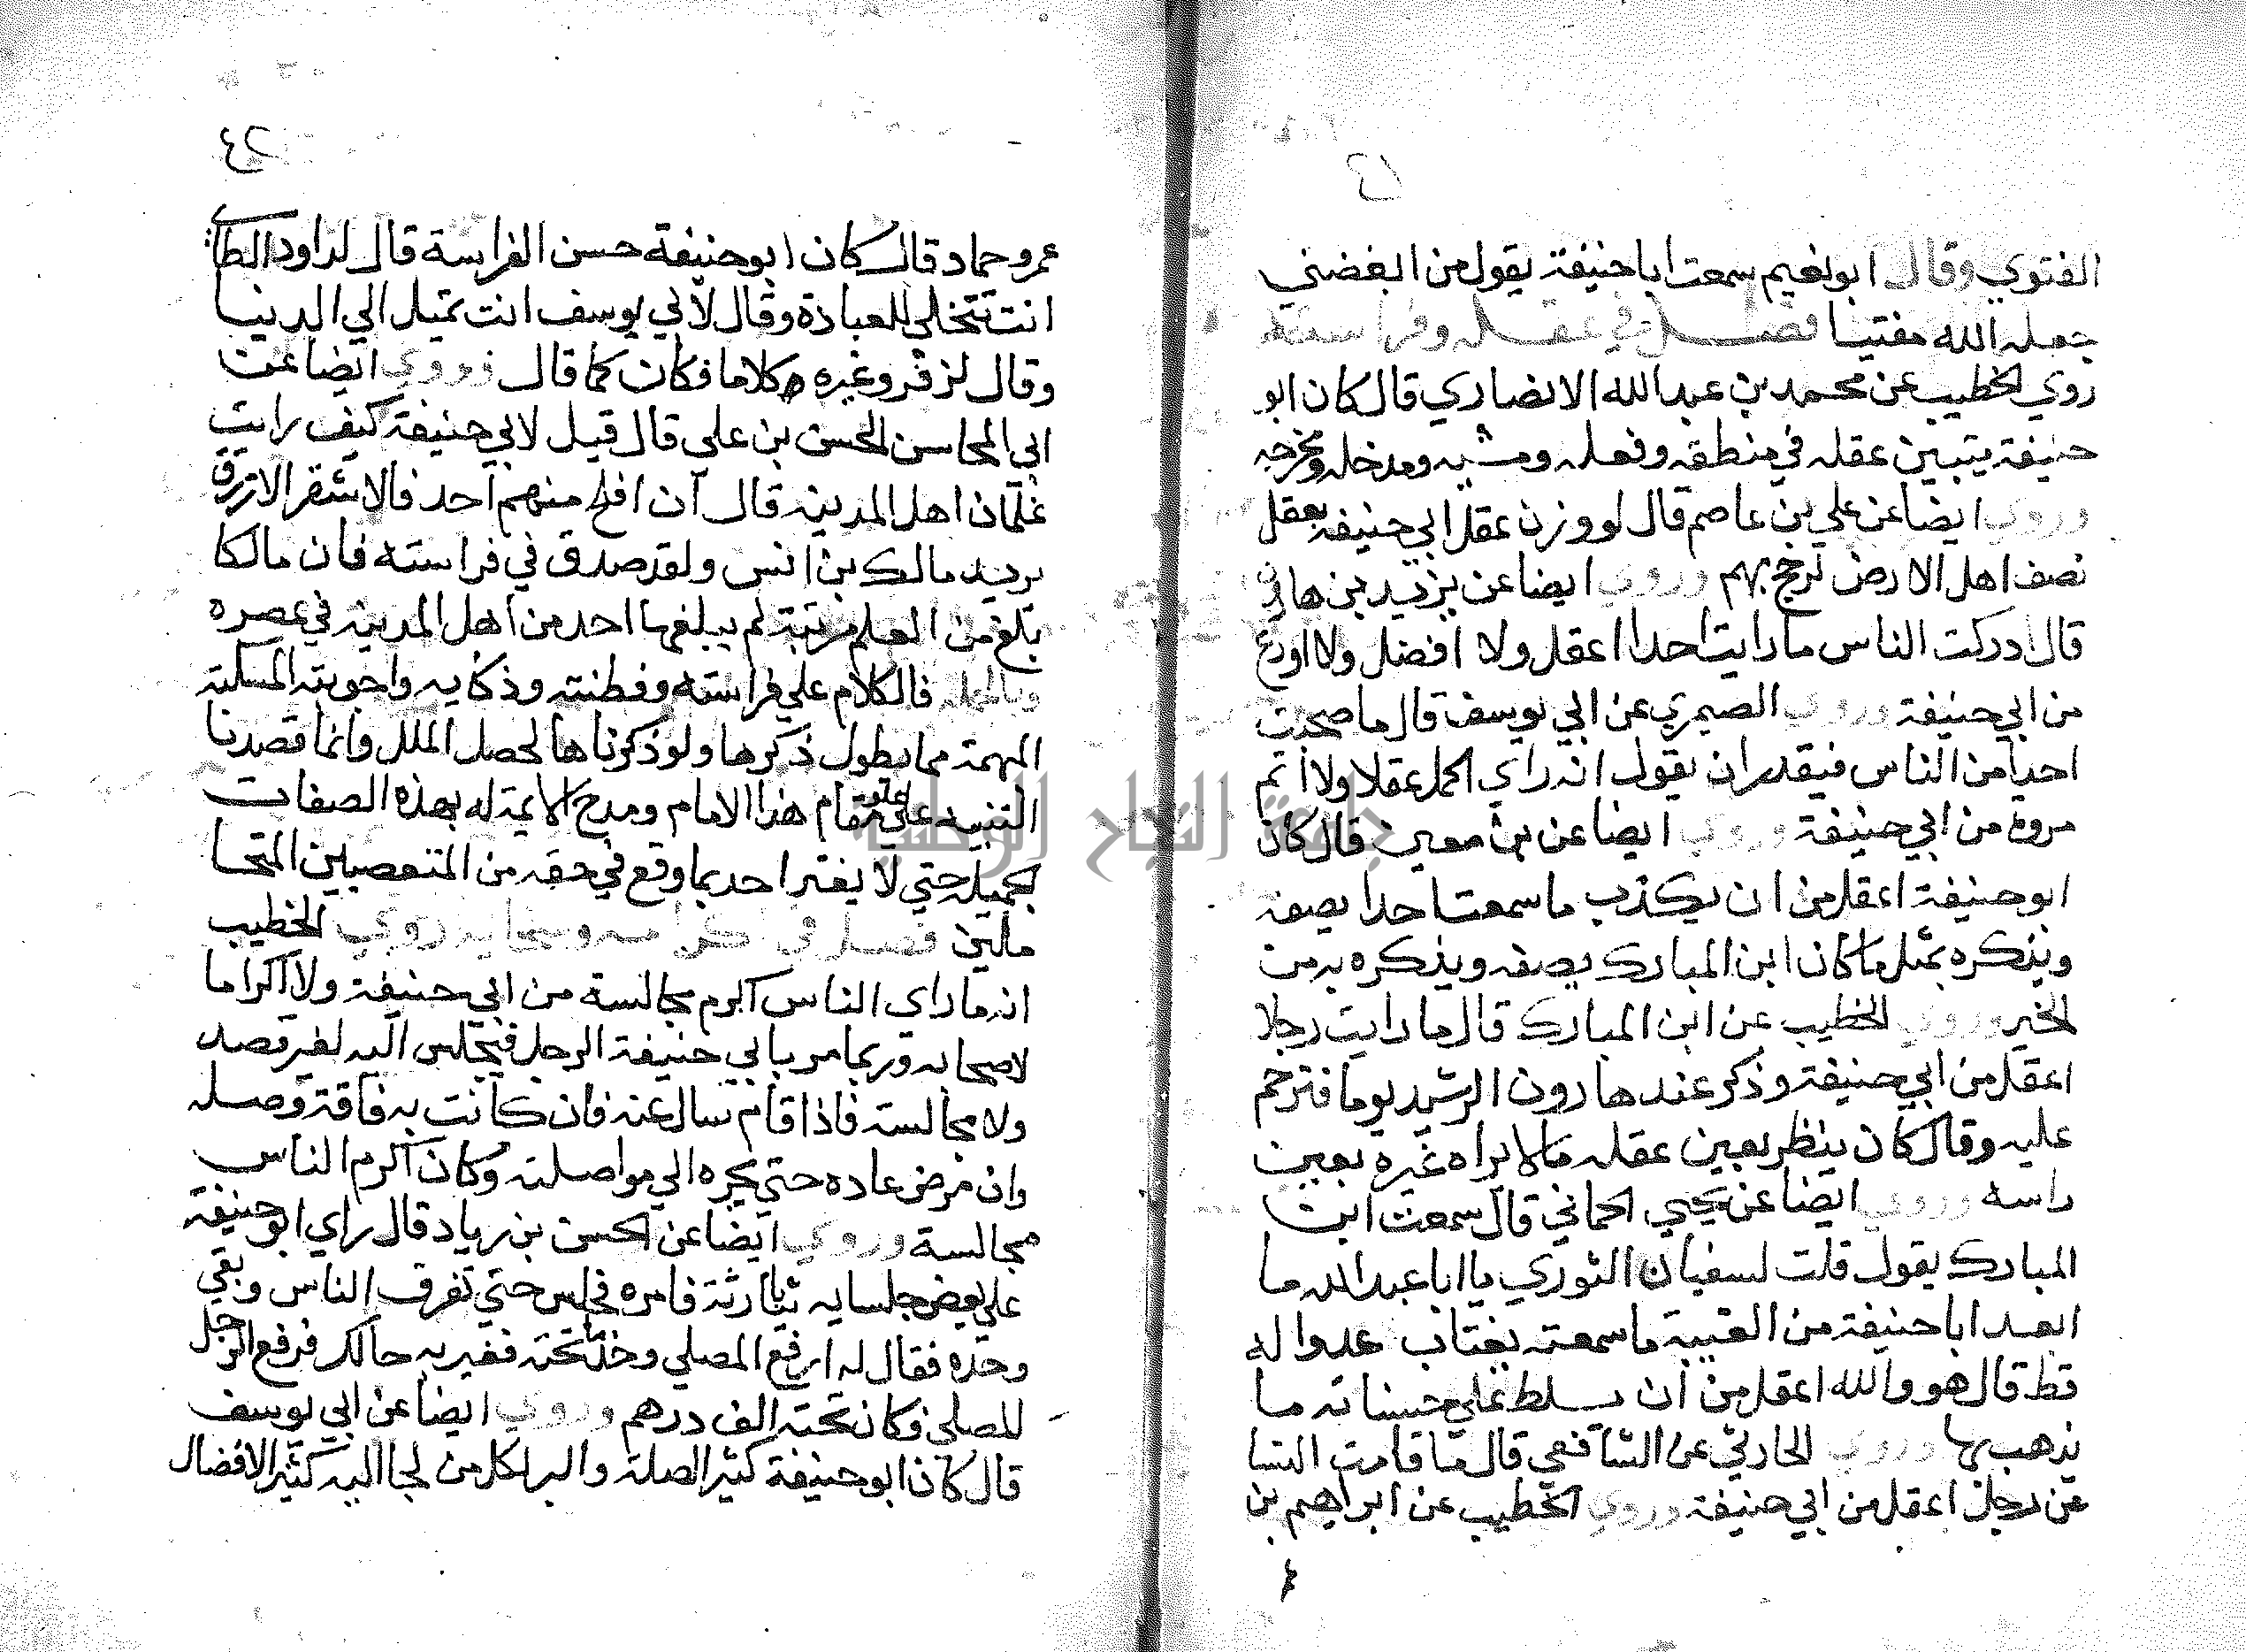 الفتوي وقال ابو نعيم سمعت ابا حنيفة يقول من ابغضني
جعله الله مفتيا فصل في عقله وفراسته
روي الخطيب عن محمد بن عبد الله الانصاري قال كان ابو
حنيفة يتبين عقله في منطقه وفعله ومشيه ومدخله ومخرجه
وروي ايضا عن علي بن عاصم قال لو وزن عقل ابي حنيفة بعقل
نصف اهل الارض لرجح بهم وروي ايضا عن يزيد بن هارون
قال ادركت الناس ما رايت احدا اعقل ولا افضل ولا اورع
من ابي حنيفة وروي الصيمري عن ابي يوسف قال ما صحبت
احدا من الناس فيقدر ان يقول انه راي اكمل عقلا ولا اتم
مروة من ابي حنيفة وروي ايضا عن بن معين قال كان
ابو حنيفة اعقل من ان يكذب ما سمعت احدا يصفه
ويذكره بمثل ما كان ابن المبارك يصفه ويذكره به من
الخير وروي الخطيب عن ابن المبارك قال ما رايت رجلا
اعقل من ابي حنيفة وذكر عند هارون الرشيد يوما فترحم
عليه وقال كان ينظر بعين عقله ما لا يراه غيره بعين
راسه وروي ايضا عن يحيي الحماني قال سمعت ابن
المبارك يقول قلت لسفيان الثوري يا ابا عبد الله ما
ابعد ابا حنيفة من الغيبة ما سمعته يغتاب عدوا له
قط قال هو والله اعقل من ان يسلط علي حسناته ما
يذهب بها وروي الحارثي عن الشافعي قال ما قامت النسا
عن رجل اعقل من ابي حنيفة وروي الخطيب عن ابراهيم بن
٢٤
عمرو حماد قال كان ابو حنيفة حسن الفراسة قال لداود الطائي
انت تتخلي للعبادة وقال لابي يوسف انت تميل الي الدنيا
وقال لزفر وغيره كلاما فكان كما قال وروي ايضا عن
ابي المحاسن الحسن بن علي قال قيل لابي حنيفة كيف رايت
غلمان اهل المدينة قال ان افلح منهم احد فالاشقر الازرق
يريد مالك بن انس ولقد صدق في فراسته فان مالكا
بلغ من العلم مرتبة لم يبلغها احد من اهل المدينة في عصره
وبالجملة فالكلام علي فراسته وفطنته وذكايه واجوبته المسكتة
المهمة مما يطول ذكرها ولو ذكرناها لحصل الملل وانما قصدنا
التنبيه علي علو مقام هذا الامام ومدح الايمة له بهذه الصفات
الجميلة حتي لا يغتر احد بما وقع في حقه من المتعصبين المتحا
ملين فصل في كرامه وسخايه روي الخطيب
انه ما راي الناس اكرم مجالسة من ابي حنيفة ولا اكراما
لاصحابه وربما مر بابي حنيفة الرجل فيجلس اليه لغير قصد
ولا مجالسة فاذا قام سال عنه فان كانت به فاقة وصله
وان مرض عاده حتي يجره الي مواصلته وكان اكرم الناس
مجالسة وروي ايضا عن الحسن بن زياد قال راي ابو حنيفة
علي بعض جلسايه ثيابا رثة فامره فجلس حتي تفرق الناس وبقي
وحده فقال له ارفع المصلي وخذ ما تحته فغير به حالك فرفع الرجل
المصلي فكان تحته الف درهم وروي ايضا عن ابي يوسف
قال كان ابو حنيفة كثير الصلة والبر لكل من لجا اليه كثير الافضال
جامعة النجاح الوطنية